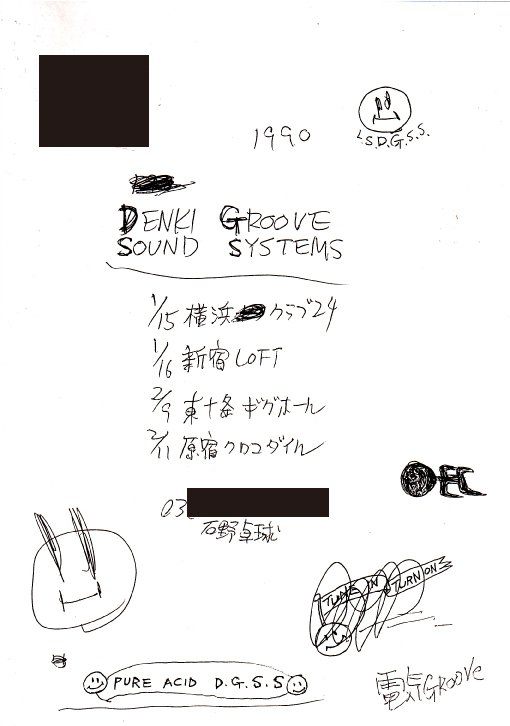 1990
L.S.D.G.S.S.
DENKI GROOVE
SOUND SYSTEMS
1/15 横浜 クラブ24
1/16 新宿LOFT
2/9 東十条 ギグホール
2/11 原宿クロコダイル
03
石野卓球
TUNE IN TURN ON
PURE ACID D.G.S.S
電気GROOVE